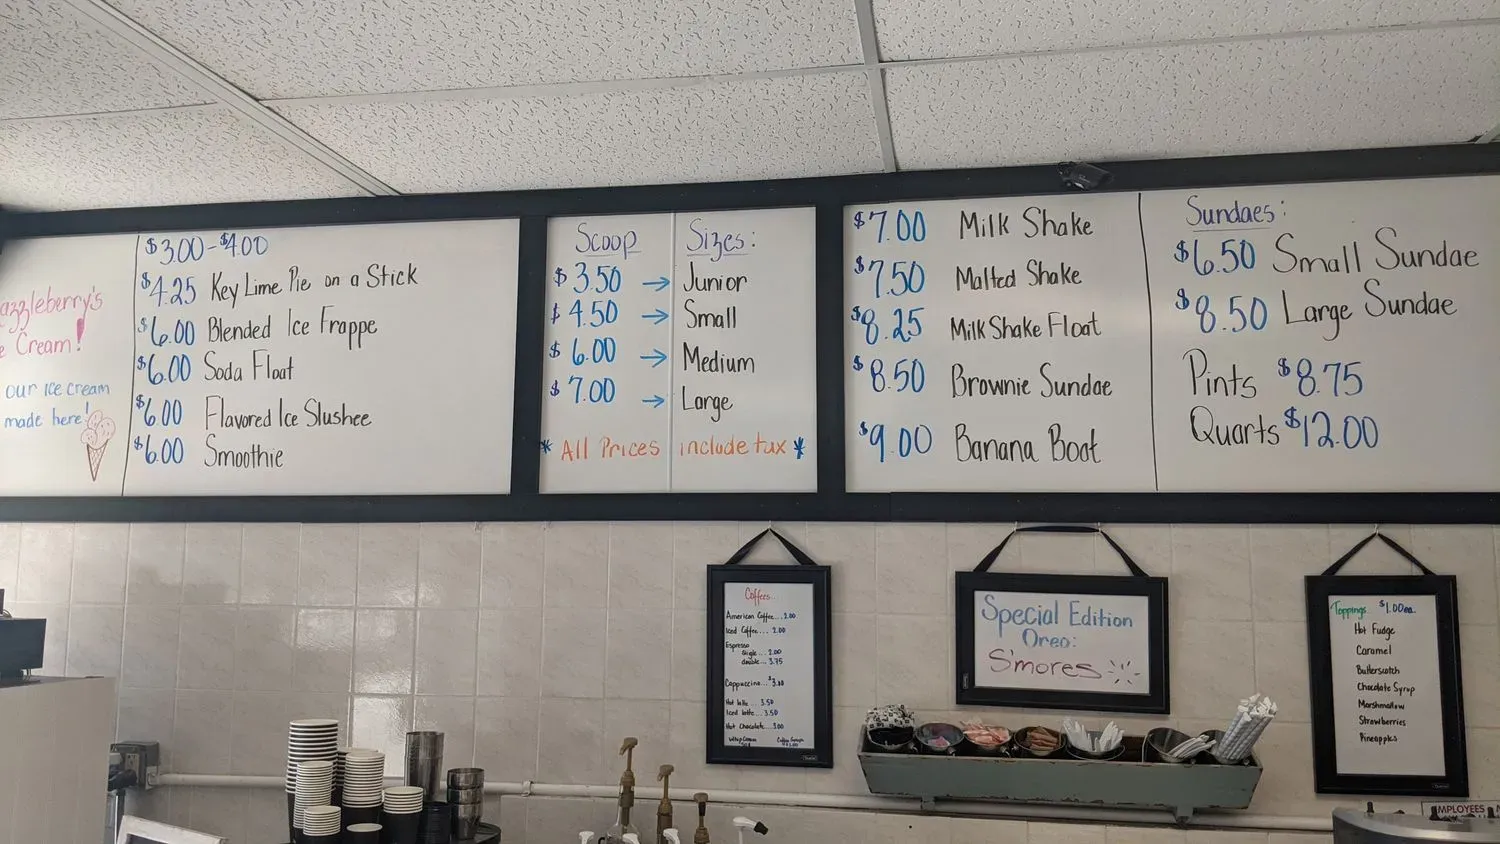 azzleberry's
e Cream!
our ice cream
made here!
$3.00-$4.00
$4.25 Key Lime Pie on a Stick
$6.00 Blended Ice Frappe
$6.00 Soda Float
$6.00 Flavored Ice Slushee
$6.00 Smoothie
Scoop Sizes:
$3.50 → Junior
$4.50 → Small
$6.00 → Medium
$7.00 → Large
* All Prices include tax *
$7.00 Milk Shake
$7.50 Malted Shake
$8.25 Milk Shake Float
$8.50 Brownie Sundae
$9.00 Banana Boat
Sundaes:
$6.50 Small Sundae
$8.50 Large Sundae
Pints $8.75
Quarts $12.00
Coffees..
American Coffee...2.00
Iced Coffee....2.00
Espresso
single...2.00
double...3.75
Cappuccino...
Hot latte...3.50
Iced latte...3.50
Hot Chocolate...3.00
Whip Cream
Special Edition
Oreo:
S'mores
Toppings $1.00ea.
Hot Fudge
Caramel
Butterscotch
Chocolate Syrup
Marshmallow
Strawberries
Pineapples
EMPLOYEES